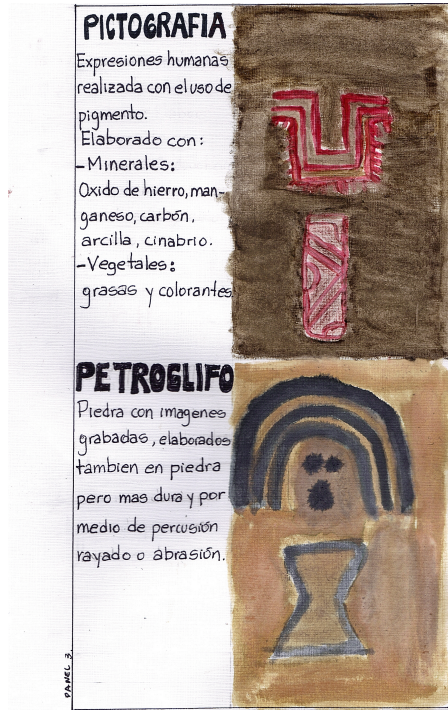 PICTOGRAFIA
Expresiones humanas
realizada con el uso de
pigmento.
Elaborado con:
-Minerales:
Oxido de hierro, man-
ganeso, carbón,
arcilla, cinabrio.
-Vegetales:
grasas y colorantes
PETROGLIFO
Piedra con imagenes
grabadas, elaborados
tambien en piedra
pero mas dura y por
medio de percusión
rayado o abrasión.
PANEL 3